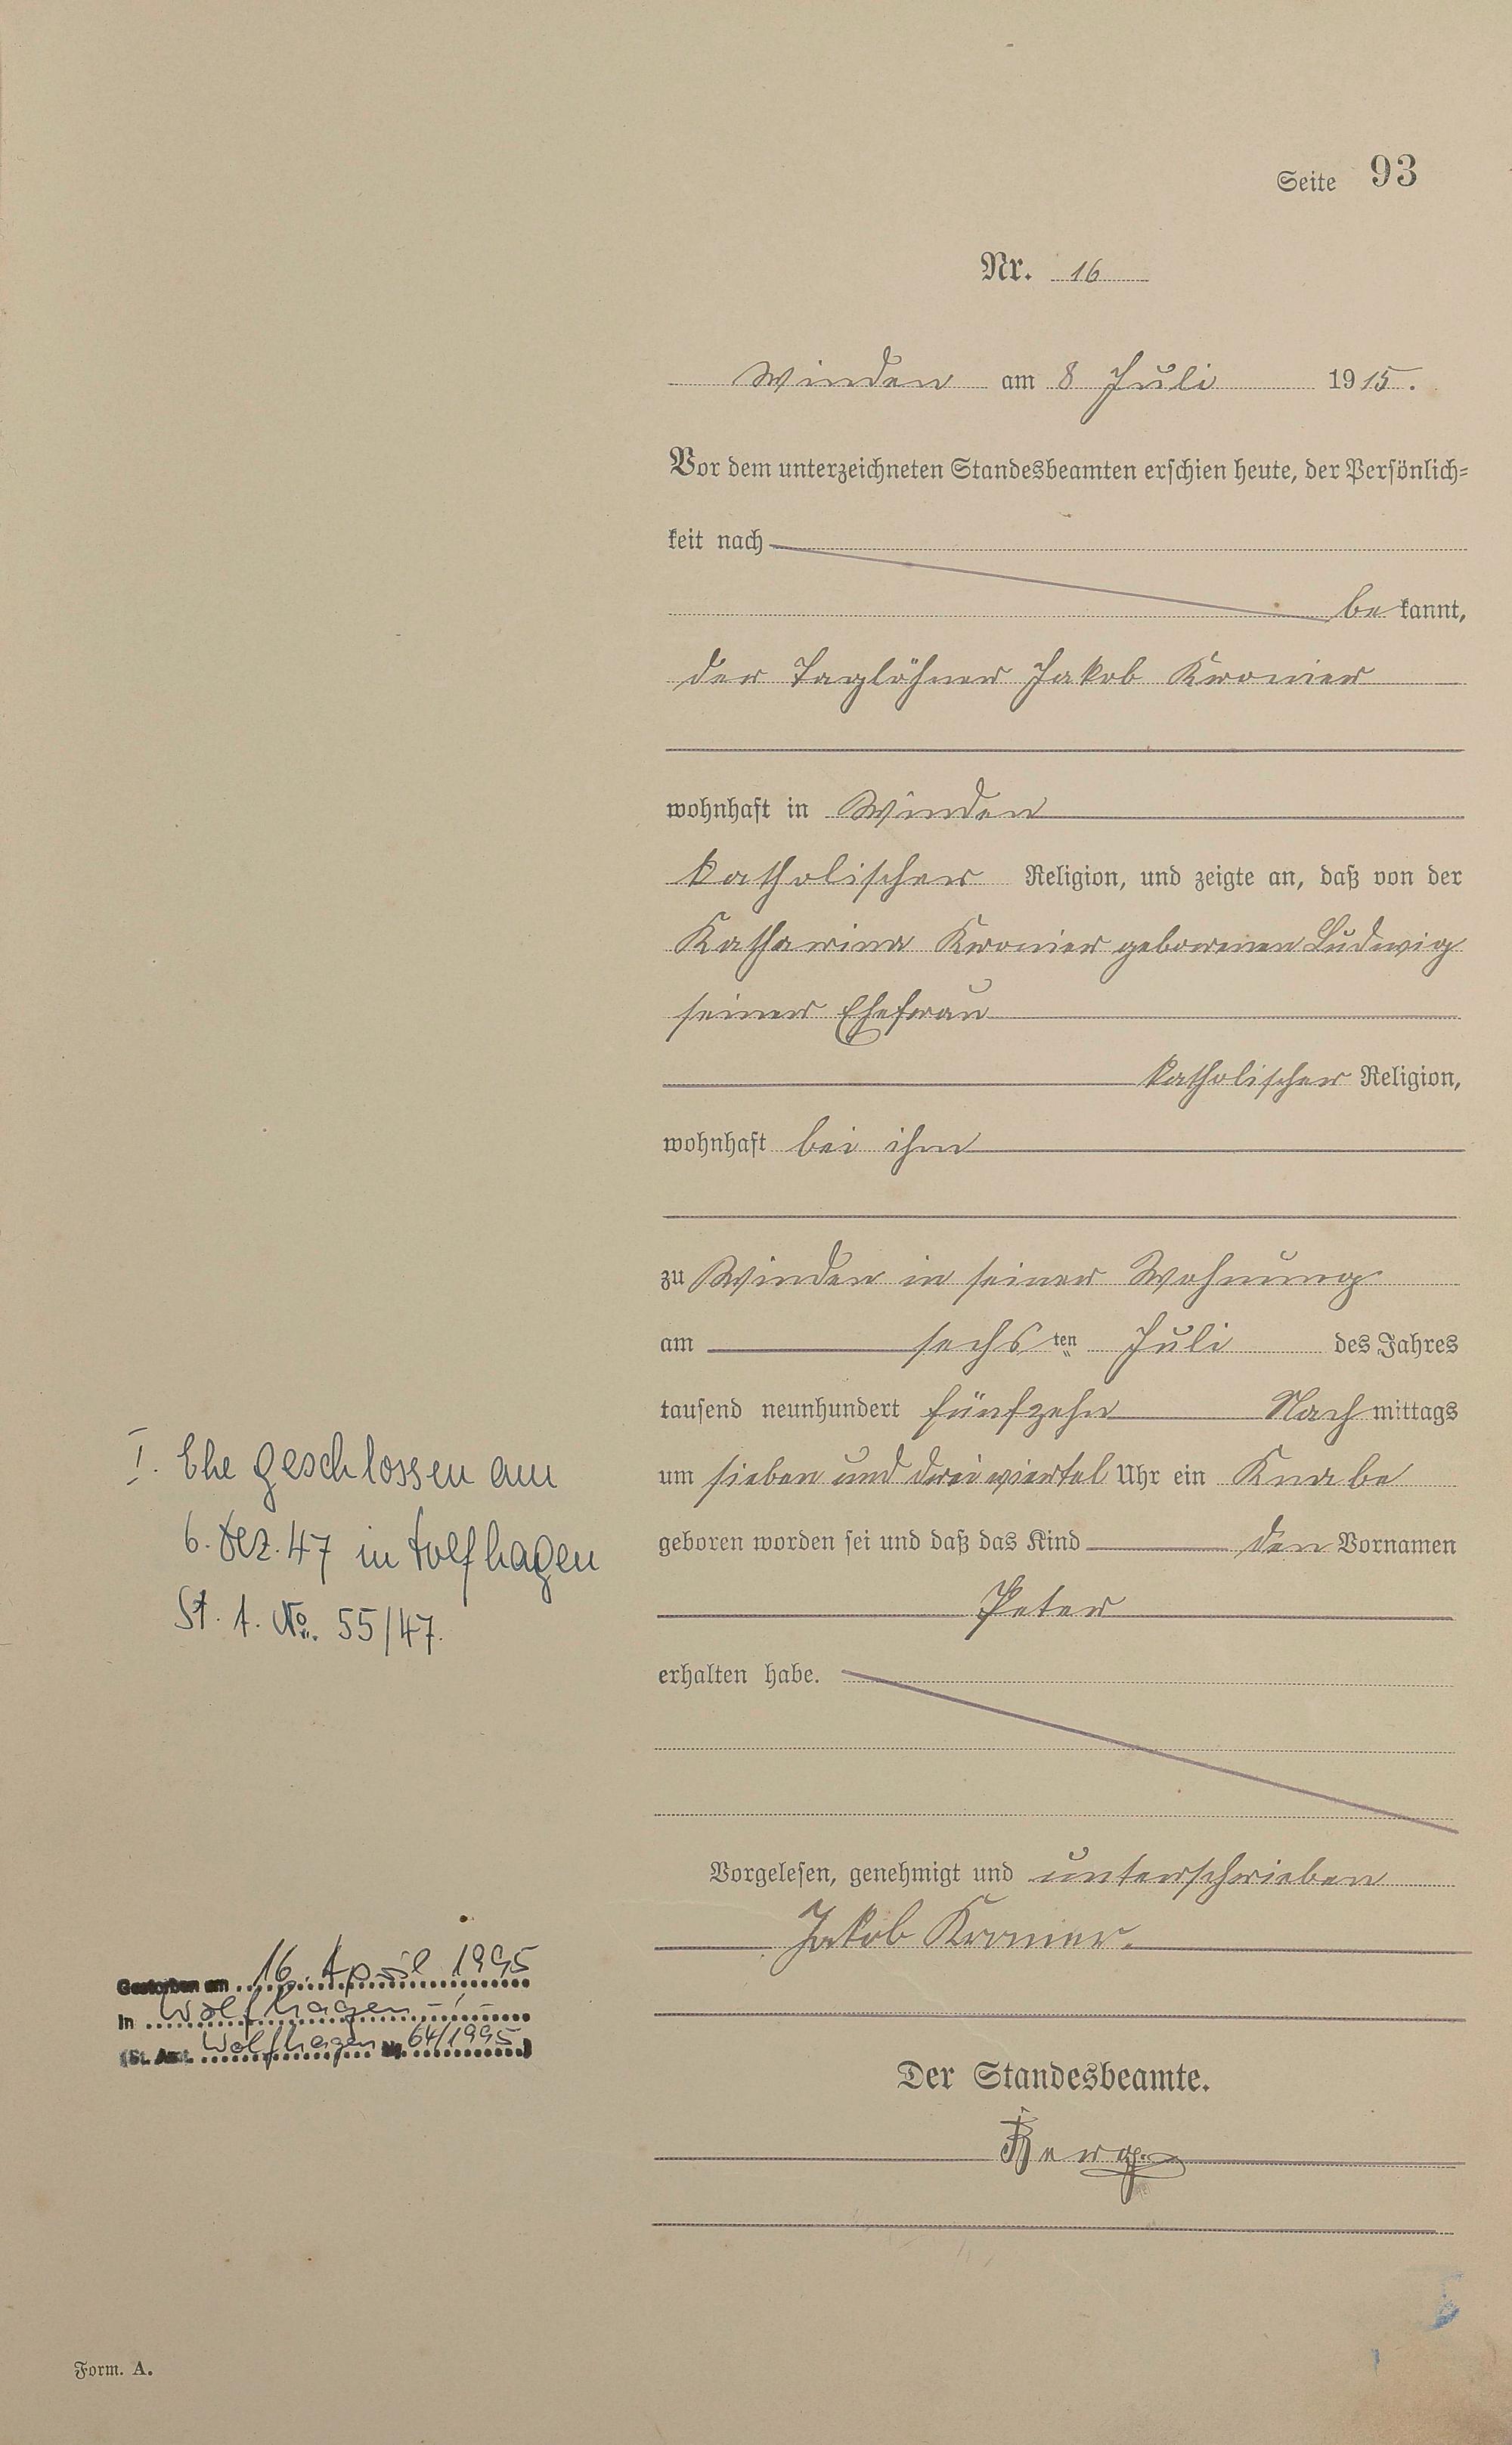 Seite 93
Nr. 16
Winden am 8 Juli 1915.
Vor dem unterzeichneten Standesbeamten erschien heute, der Persönlich=
keit nach
be kannt,
der Taglöhner Jakob Kromer
wohnhaft in Winden
katholischer Religion, und zeigte an, daß von der
Katharina Kromer geborenen Ludwig
seiner Ehefrau
katholischer Religion,
wohnhaft bei ihm
zu Winden in seiner Wohnung
am sechs ten Juli des Jahres
tausend neunhundert fünfzehn Nach mittags
um sieben und dreiviertel Uhr ein Knabe
geboren worden sei und daß das Kind den Vornamen
Peter
erhalten habe.
Vorgelesen, genehmigt und unterschrieben
Jakob Kromer.
Der Standesbeamte.
Berg
I. Ehe geschlossen am
6. Dez. 47 in Wolfhagen
St. A. No. 55/47.
Gestorben am 16. April 1995
in Wolfhagen -,-
(St. Amt. Wolfhagen Nr. 64/1995)
Form. A.